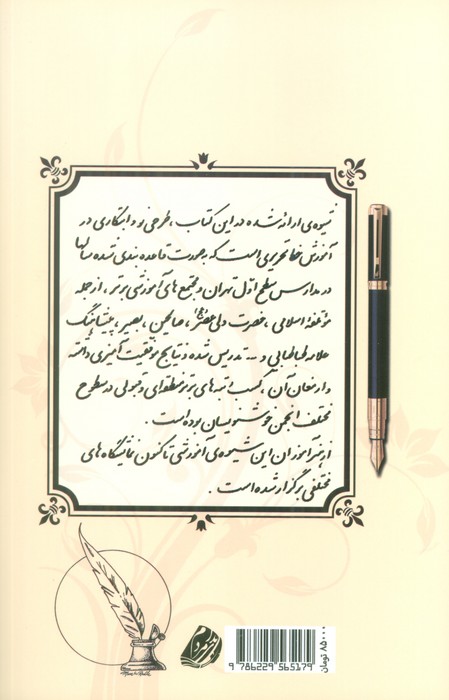 شیوه‌ی ارائه شده در این کتاب، طرحی نو و ابتکاری در
آموزش خط تحریری است که به صورت قاعده بندی شده سالها
در مدارس سطح اول تهران و مجتمع های آموزشی برتر، از جمله
مؤتلفهٔ اسلامی، حضرت ولی عصر(عج)، صالحین، بصیر، پیشتاهنگ
علامه طباطبایی و ... تدریس شده و نتایج موفقیت آمیزی داشته
و ارمغان آن، کسب رتبه های برتر منطقه ای و قبولی در سطوح
مختلف انجمن خوشنویسان بوده است.
از هنرآموزان این شیوه‌ی آموزشی تاکنون نمایشگاه های
مختلفی برگزار شده است.
9 786229 565179
۸۵۰۰۰ تومان